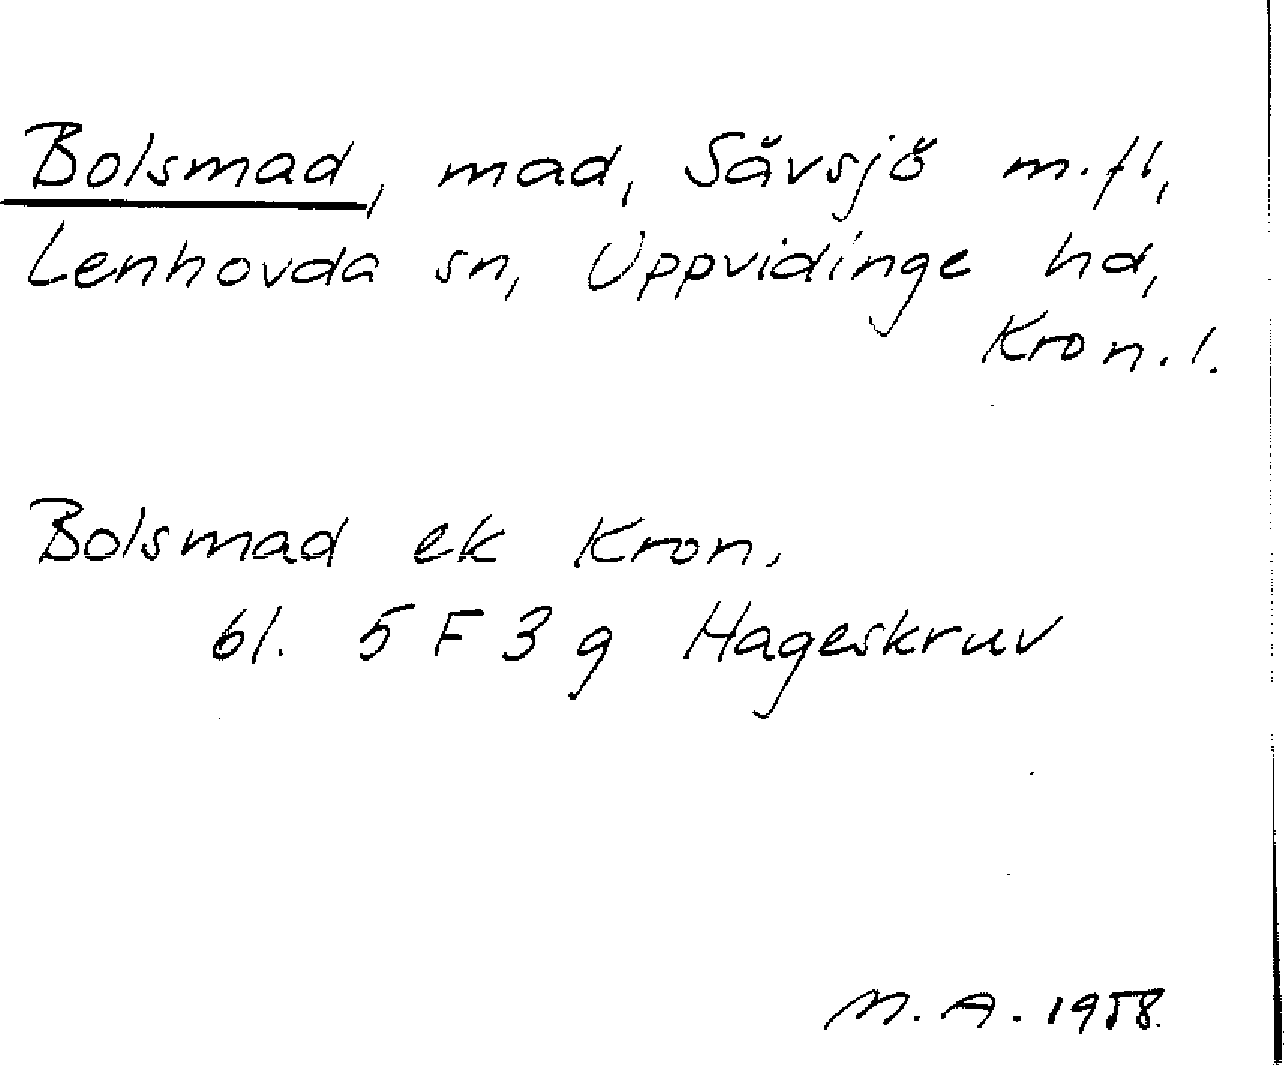 Bolsmad, mad, Sävsjö m.fl,
Lenhovda sn, Uppvidinge hd,
Kron. l.
Bolsmad ek Kron.
bl. 5 F 3 g Hageskruv
M. A. 1958.